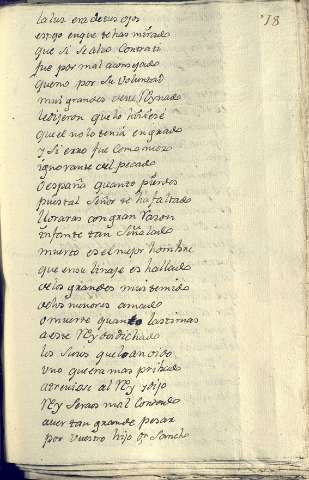 18
la luz era de tus ojos
espejo en que te has mirado
que si se alço contra ti
fue por mal aconsejado
que no por su voluntad
mui grandes deste Reynado
le dijeron que lo hiciese
que el no lo tenia en grado
y si erro fue como moço
ignorante del pecado
o españa quanto pierdes
pues tal señor te ha faltado
lloraras con gran raçon
infante tan señalado
muerto es el mejor hombre
que en su linaje es hallado
de los grandes mui temido
de los menores amado
o muerte quanto lastimas
a este Rey desdichado
los suios que lo an oido
uno que era mas pribado
atreuiose al Rey y dijo
Rey seraos mal contado
auer tan grande pesar
por vuestro hijo Dn Sancho